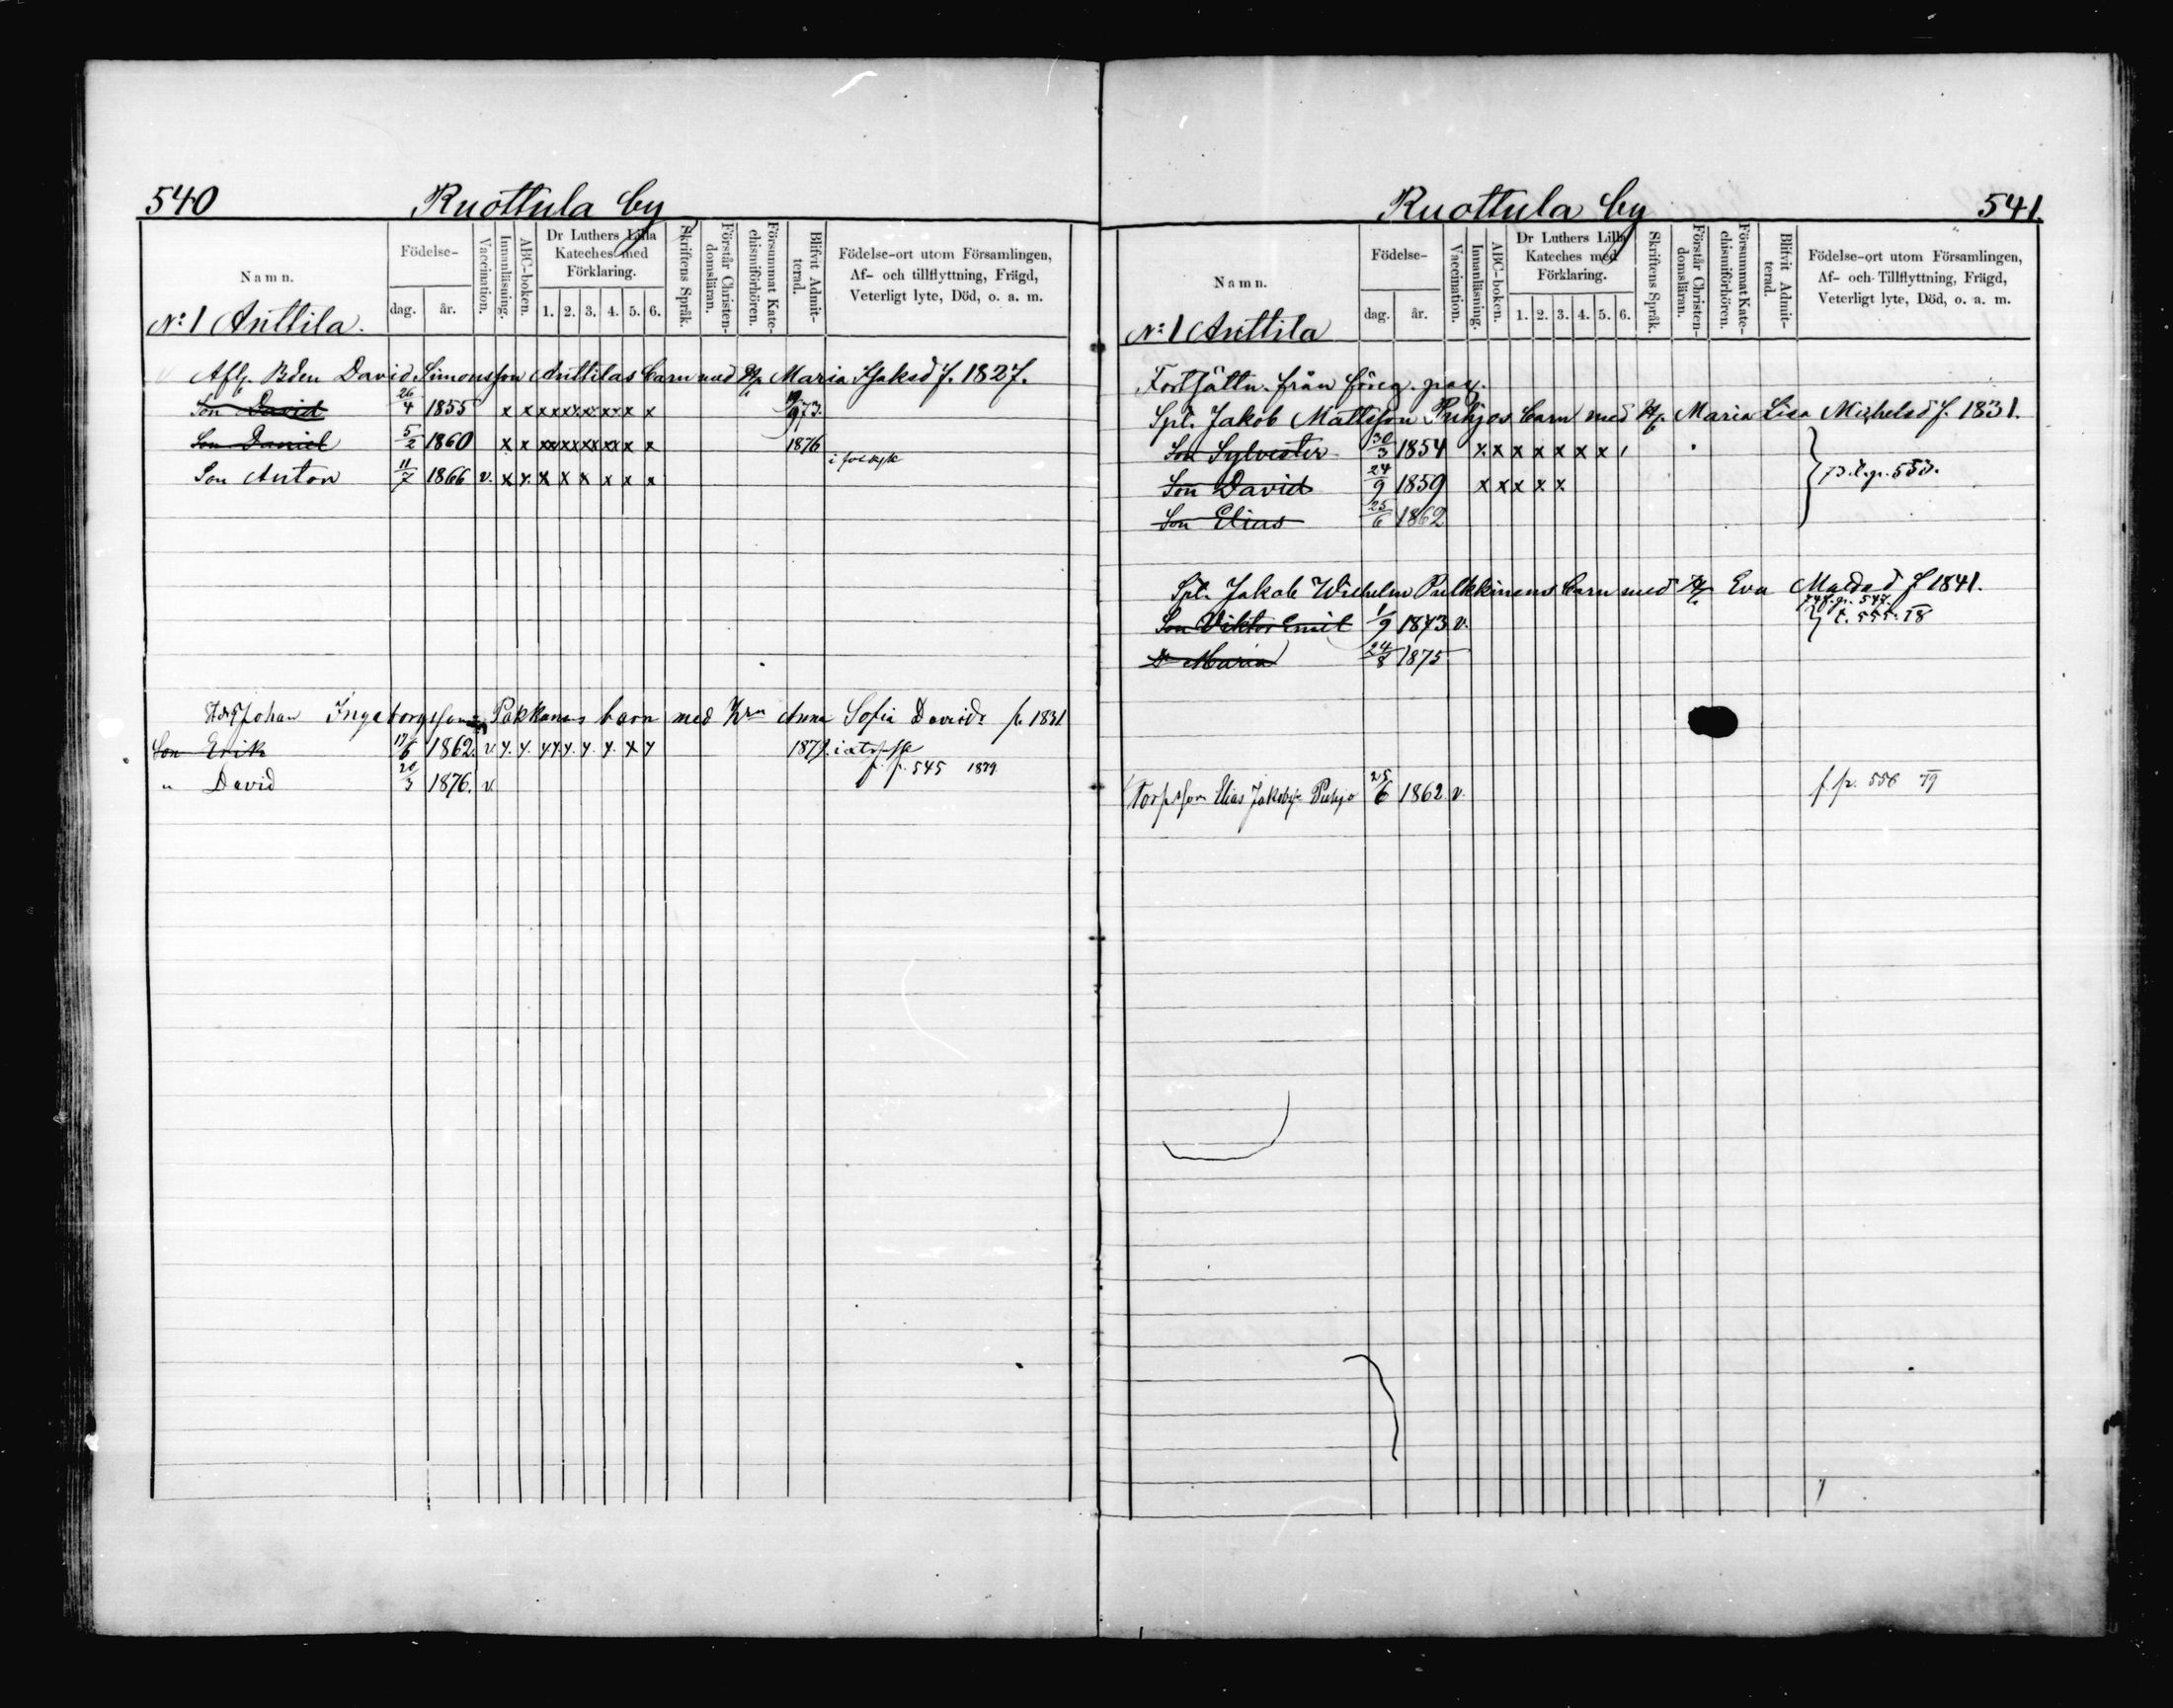 540 Ruottula by
Namn.
Födelse-
dag. år.
Vaccination.
Innanläsning.
ABC-boken.
Dr Luthers Lilla
Kateches med
Förklaring.
1. 2. 3. 4. 5. 6.
Skriftens Språk.
Förstår Christen-
domsläran.
Försummat Kate-
chismiförhören.
Blifvit Admit-
terad.
Födelse-ort utom Församlingen,
Af- och tillflyttning, Frägd,
Veterligt lyte, Död, o. a. m.
No 1 Anttila.
Afl. Bden David Simonsson Anttilas barn med H. Maria Isaksd f. 1827.
Son David 26/4 1855 x x x x x x x x x 19/9 73.
Son Daniel 5/2 1860 x x xx xx xx xx x x 1876
Son Anton 11/7 1866 v. x x. x x x x x x
Johan Ingeborgsson Pakkanens barn med Hrn Anna Sofia Davidr f. 1831
Son Erik 17/6 1862. v. x. x. xx. x. x. x. x x 1879.
f. p. 545 1879
" David 20/3 1876. v.
Ruottula by 541.
Namn.
Födelse-
dag. år.
Vaccination.
Innanläsning.
ABC-boken.
Dr Luthers Lilla
Kateches med
Förklaring.
1. 2. 3. 4. 5. 6.
Skriftens Språk.
Förstår Christen-
domsläran.
Försummat Kate-
chismiförhören.
Blifvit Admit-
terad.
Födelse-ort utom Församlingen,
Af- och Tillflyttning, Frägd,
Veterligt lyte, Död, o. a. m.
No 1 Anttila
Fortsättn. från föreg. pag.
Spl. Jakob Mattsson Puhjos barn med H. Maria Lisa Michelsd f. 1831.
Son Sylvester 30/3 1854 x. x x x x x x
Son David 24/9 1859 x x x x x
Son Elias 25/6 1862
Spl. Jakob Wilhelm Pulkkinens barn med H. Eva Madsd f 1841.
Son Viktor Emil 1/9 1873 v. t. 555. 78
Dr Maria 24/8 1875
Torpsson Elias Jakobss. Puhjo 25/6 1862. v. f. p. 556 79